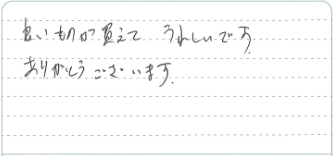 良いものが買えて うれしいです
ありがとうございます.